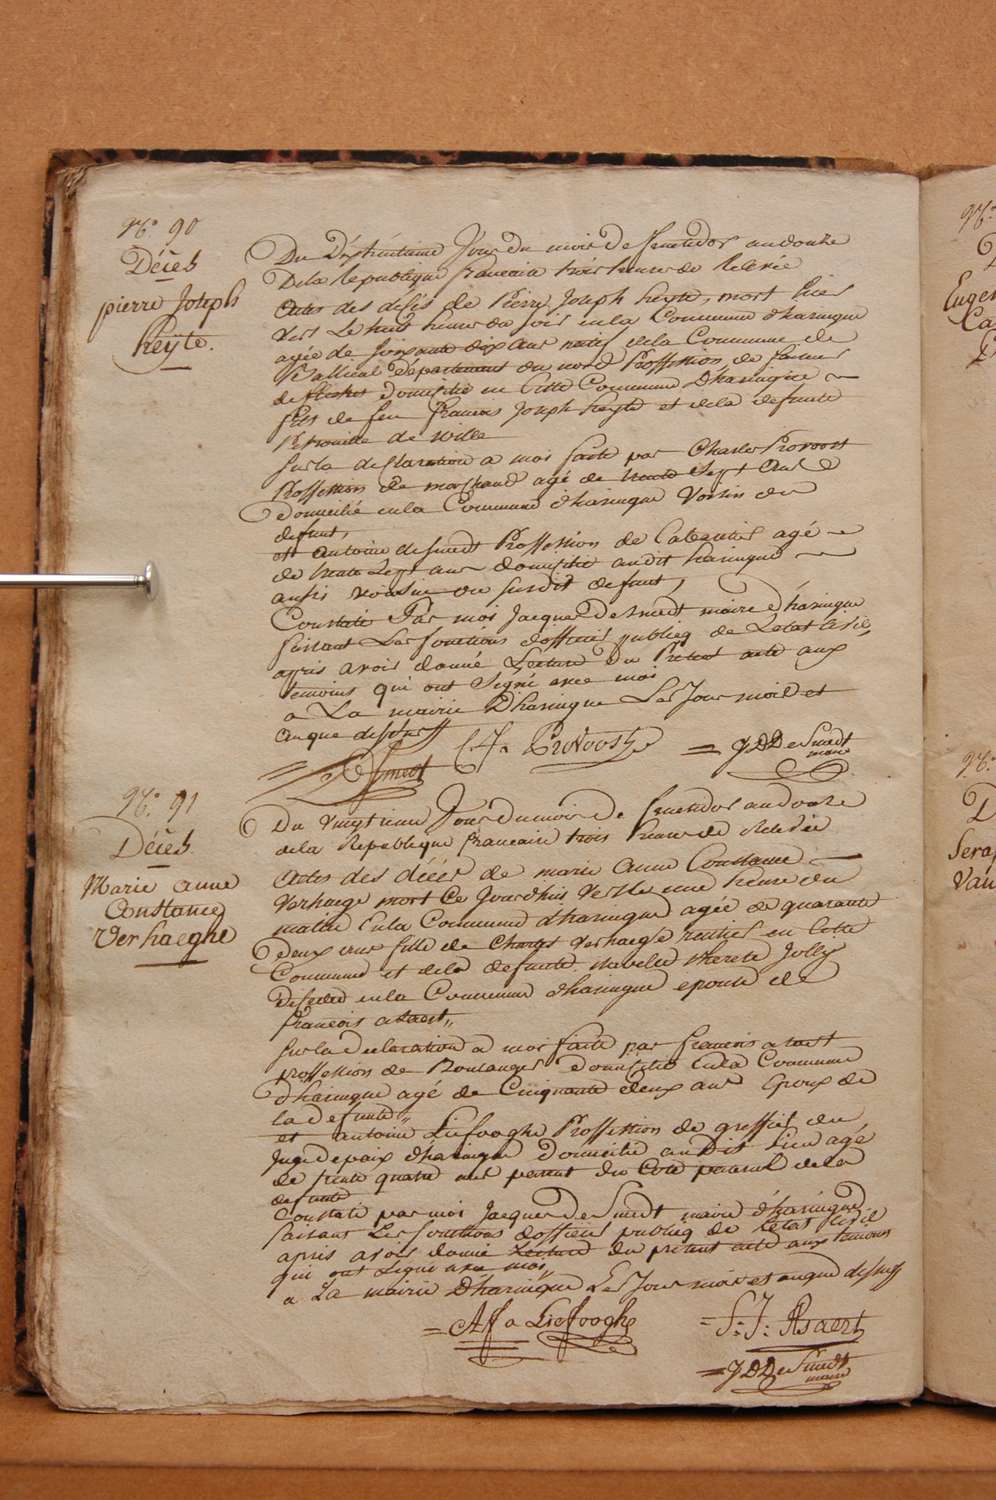 No. 90
Décès
pierre Joseph
heÿte.
Du Dixhuitieme Jour du mois de fructidor an douze
De la Republique francaise trois heures de Relevée
Actes des décès de Pierre Joseph heyte, mort hier
vers Le huit heures du soir en la Commune d'haringue
agée de soixante dix ans natif de la Commune de
departement du nord Proffession de
domicilié en Cette Commune D'haringue
fils de feu francois Joseph heyte et de la defunte
Petronille de Wille
Sur la declaration a moi faite par Charles Provoost
Proffession de marchand agé de trente sept ans
domicilié en la Commune d'haringue Voisin du
defunt,
et Antoine desmedt Proffession de Cabaretier agé
de trente sept ans domicilié au dit haringue
aussi voisin du susdit defunt,
Constaté Par moi Jacques DeSmedt maire d'haringue
faisant Les fonctions d'officier publicq de L'etat Civil,
apres avoir donné Lecture du Present acte aux
temoins qui ont Signé avec moi
a La mairie D'haringue Les Jour mois et
an que dessus
Desmedt C.J. Provoost = JDDeSmedt
maire
No. 91
Décès
Marie anne
Constance
Verhaeghe
Du vingtieme Jour du mois de fructidor an douze
de la Republique francaise trois heures de Relevée
Actes des décès de marie anne Constance
Verhaege mort Ce Jourdhui Vers Le une heure du
matin En la Commune d'haringue agée de quarante
deux ans fille de Charles Verhaeghe rentier en Cette
Commune et de la defunte therese Jolly
decedée en la Commune d'haringue epouse de
francois asaert,,
Sur la Declaration a moi faite par francois asaert
proffession de Boulanger domicilié en la Commune
d'haringue agé de Cinquante deux ans Epoux de
la defunte,,
et antoine Liefooghe Proffession de greffier du
Juge de paix d'haringue Domicilié au Dit Lieu agé
de trente quatre ans parent du Coté paternel de la
defunte
Constaté par moi Jacques DeSmedt maire d'haringue
faisant Les fonctions d'officier publicq de l'etat Civil
apres avoir donné Lecture du present acte aux temoins
qui ont Signé avec moi,,
a La mairie D'haringue Les Jour mois et an que dessus
= A Liefooghe = F: J: Asaert
= JDDeSmedt
maire
No.
Eugen
Ca
No.
D
Sera
Van